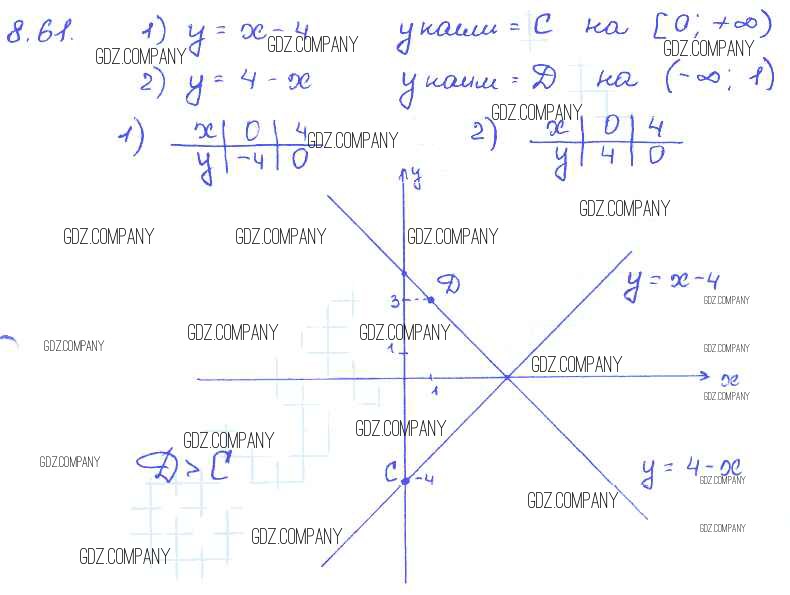 8.61. 1) y = x - 4 y наим = C на [0; +∞)
GDZ.COMPANY GDZ.COMPANY GDZ.COMPANY
2) y = 4 - x y наим = D на (-∞; 1]
GDZ.COMPANY
1) x | 0 | 4 2) x | 0 | 4
GDZ.COMPANY
y | -4 | 0 y | 4 | 0
y
GDZ.COMPANY
GDZ.COMPANY GDZ.COMPANY GDZ.COMPANY
D y = x - 4
3 GDZ.COMPANY
GDZ.COMPANY GDZ.COMPANY
GDZ.COMPANY 1 GDZ.COMPANY
GDZ.COMPANY
1 x
GDZ.COMPANY
GDZ.COMPANY GDZ.COMPANY
GDZ.COMPANY D > C C -4 y = 4 - x
GDZ.COMPANY
GDZ.COMPANY
GDZ.COMPANY GDZ.COMPANY
GDZ.COMPANY